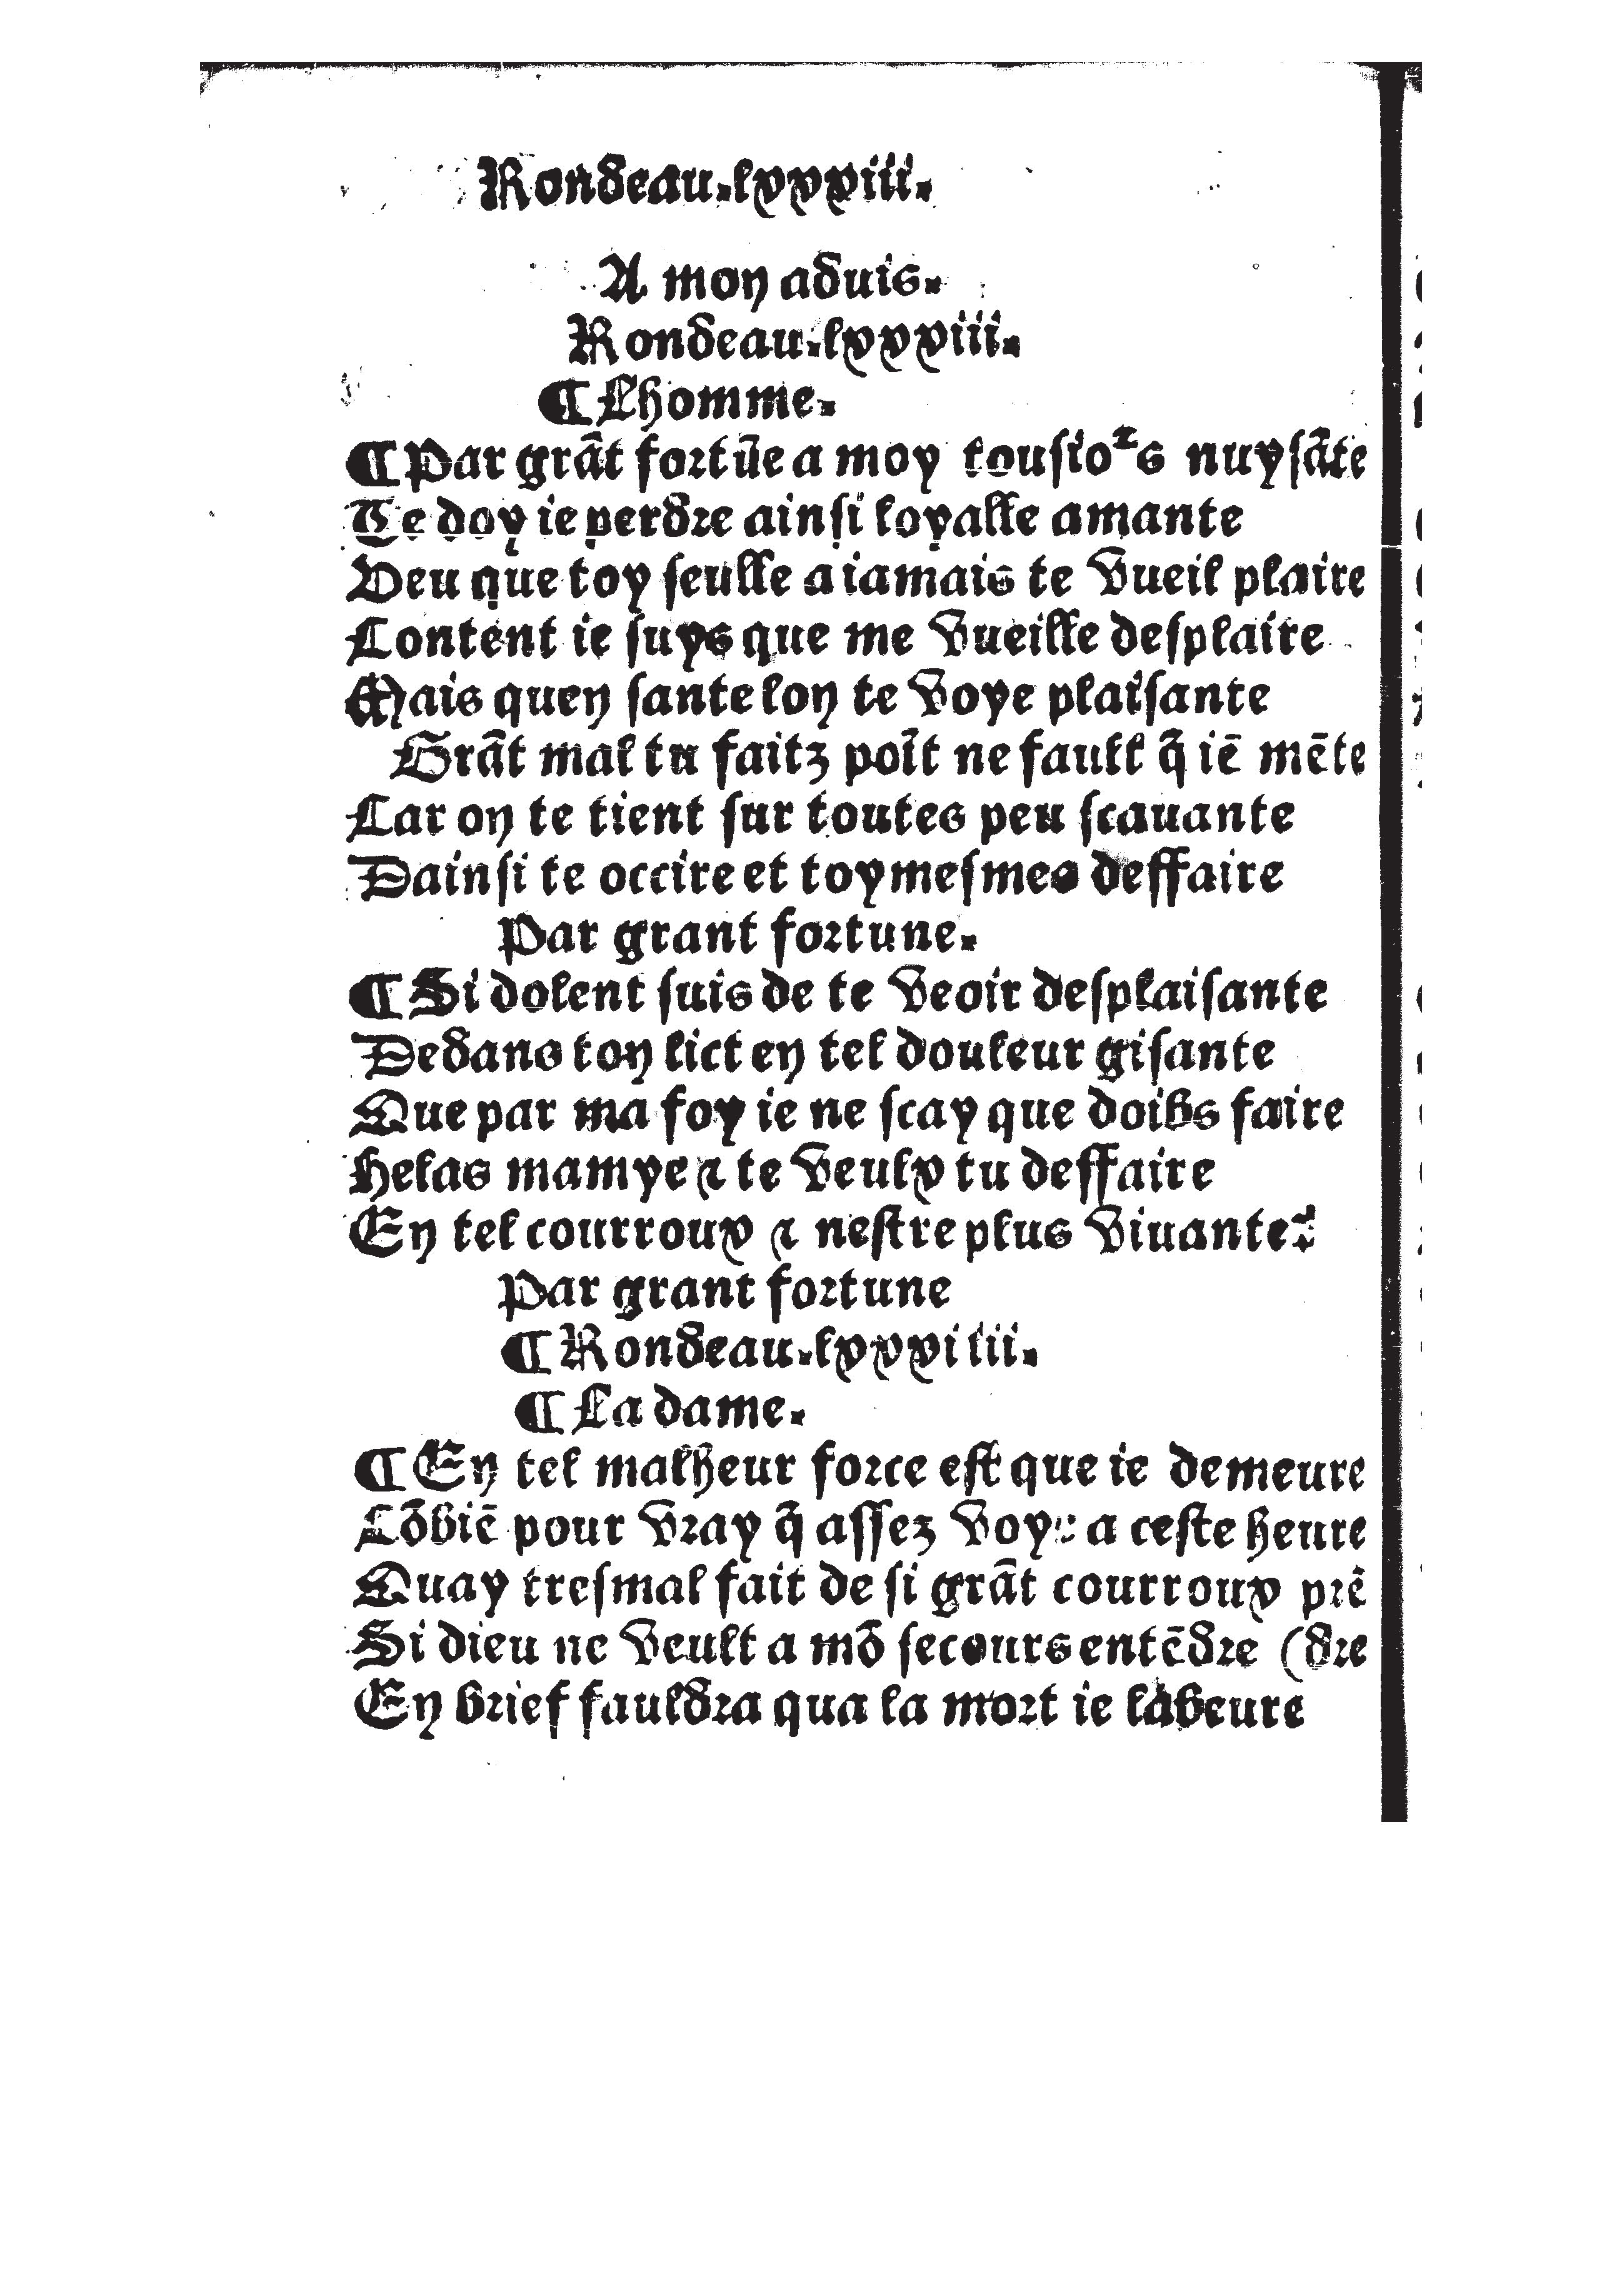 Rondeau.lxxxiii.
A mon aduis.
Rondeau.lxxxiii.
¶ Lhomme.
¶ Par grãt fortũe a moy tousioꝰs nuysãte
Te doy ie perdre ainsi loyalle amante
Veu que toy seulle a iamais te vueil plaire
Content ie suys que me vueille desplaire
Mais quen sante lon te voye plaisante
Grãt mal tu faitz poĩt ne fault q̃ iẽ mẽte
Car on te tient sur toutes peu scauante
Dainsi te occire et toymesmes deffaire
Par grant fortune.
¶ Si dolent suis de te veoir desplaisante
Dedans ton lict en tel douleur gisante
Que par ma foy ie ne scay que doibs faire
Helas mamye ⁊ te veulx tu deffaire
En tel courroux ⁊ nestre plus viuante?
Par grant fortune
¶ Rondeau.lxxxiiii.
¶ La dame.
¶ En tel malheur force est que ie demeure
Cõbiẽ pour vray q̃ assez voye a ceste heure
Quay tresmal fait de si grãt courroux prẽ
Si dieu ne veult a mõ secours entẽdre (dre
En brief fauldra qua la mort ie labeure